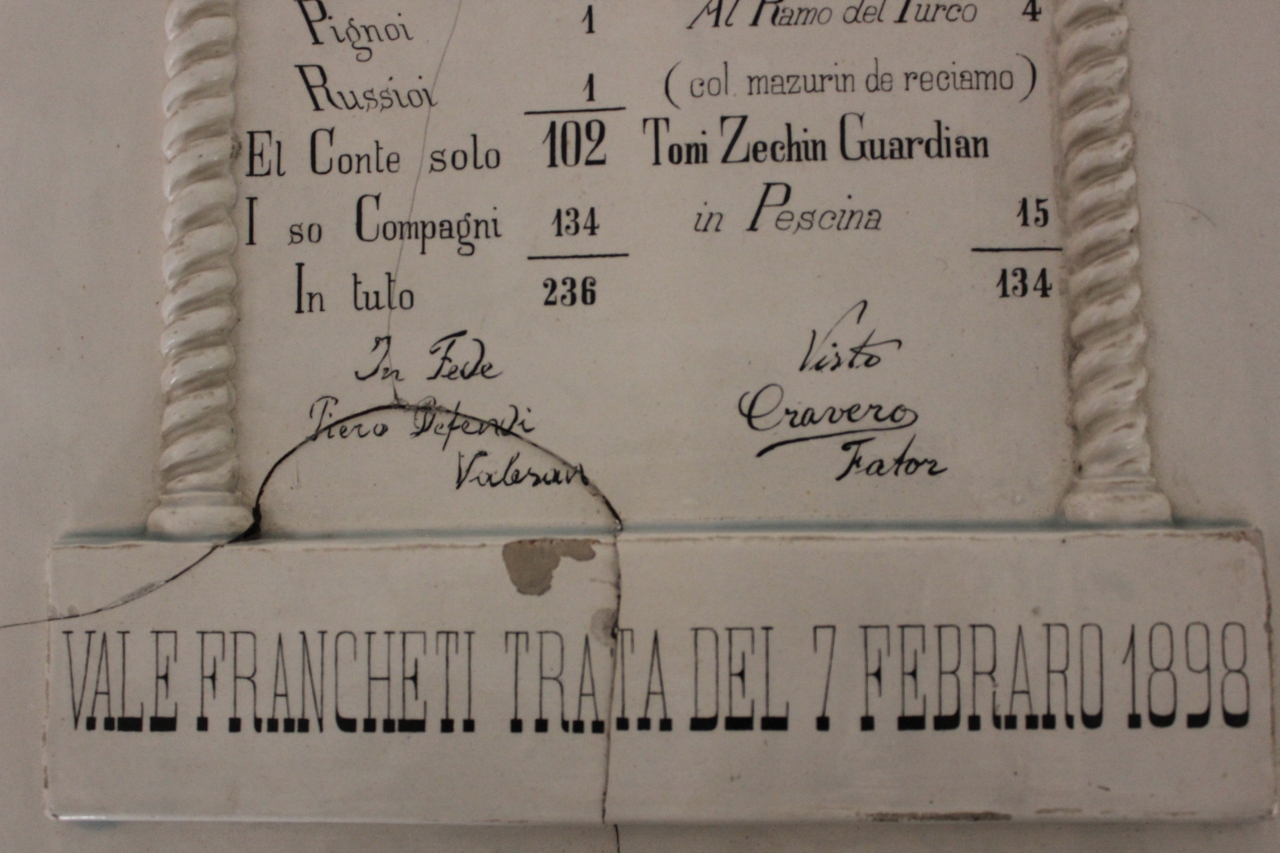 Pignoi 1
Russioi 1
El Conte solo 102
I so Compagni 134
In tuto 236
In Fede
Piero Defendi
Valesan
Al Ramo del Turco 4
(col. mazurin de reciamo)
Toni Zechin Guardian
in Pescina 15
134
Visto
Cravero
Fator
VALE FRANCHETI TRATA DEL 7 FEBRARO 1898